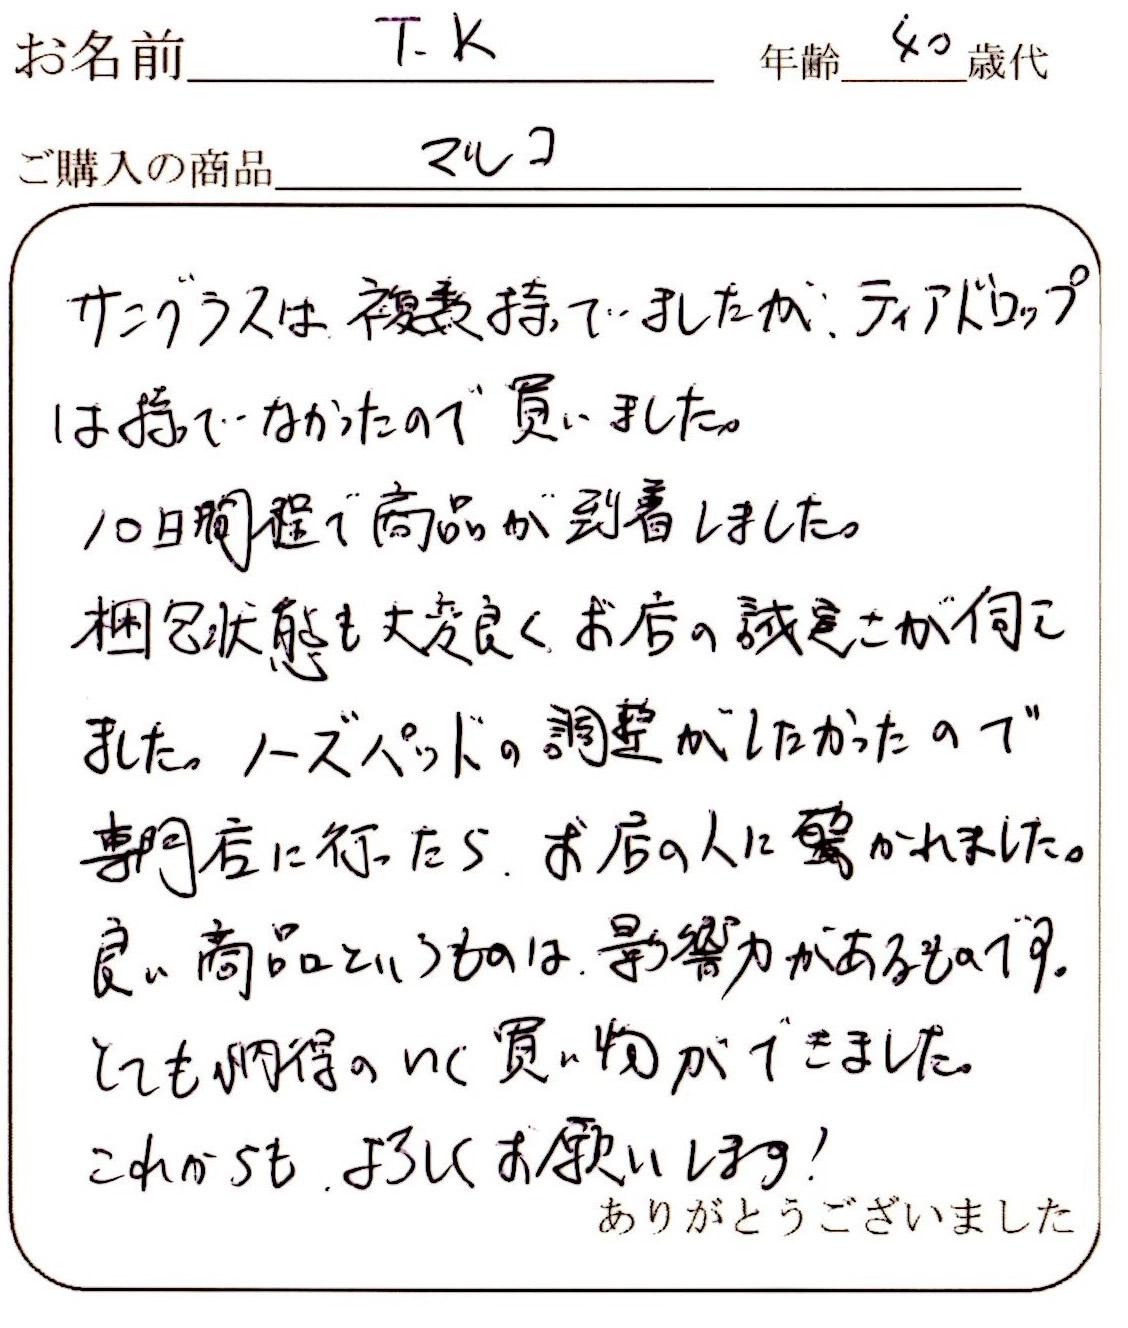 お名前 T.K 年齢 40 歳代
ご購入の商品 マルコ
サングラスは、複数持っていましたが、ティアドロップ
は持っていなかったので買いました。
10日間程で商品が到着しました。
梱包状態も大変良く、お店の誠実さが伺え
ました。ノーズパッドの調整がしたかったので
専門店に行ったら、お店の人に驚かれました。
良い商品というものは、影響力があるものです。
とても納得のいく買い物ができました。
これからも、よろしくお願いします!
ありがとうございました